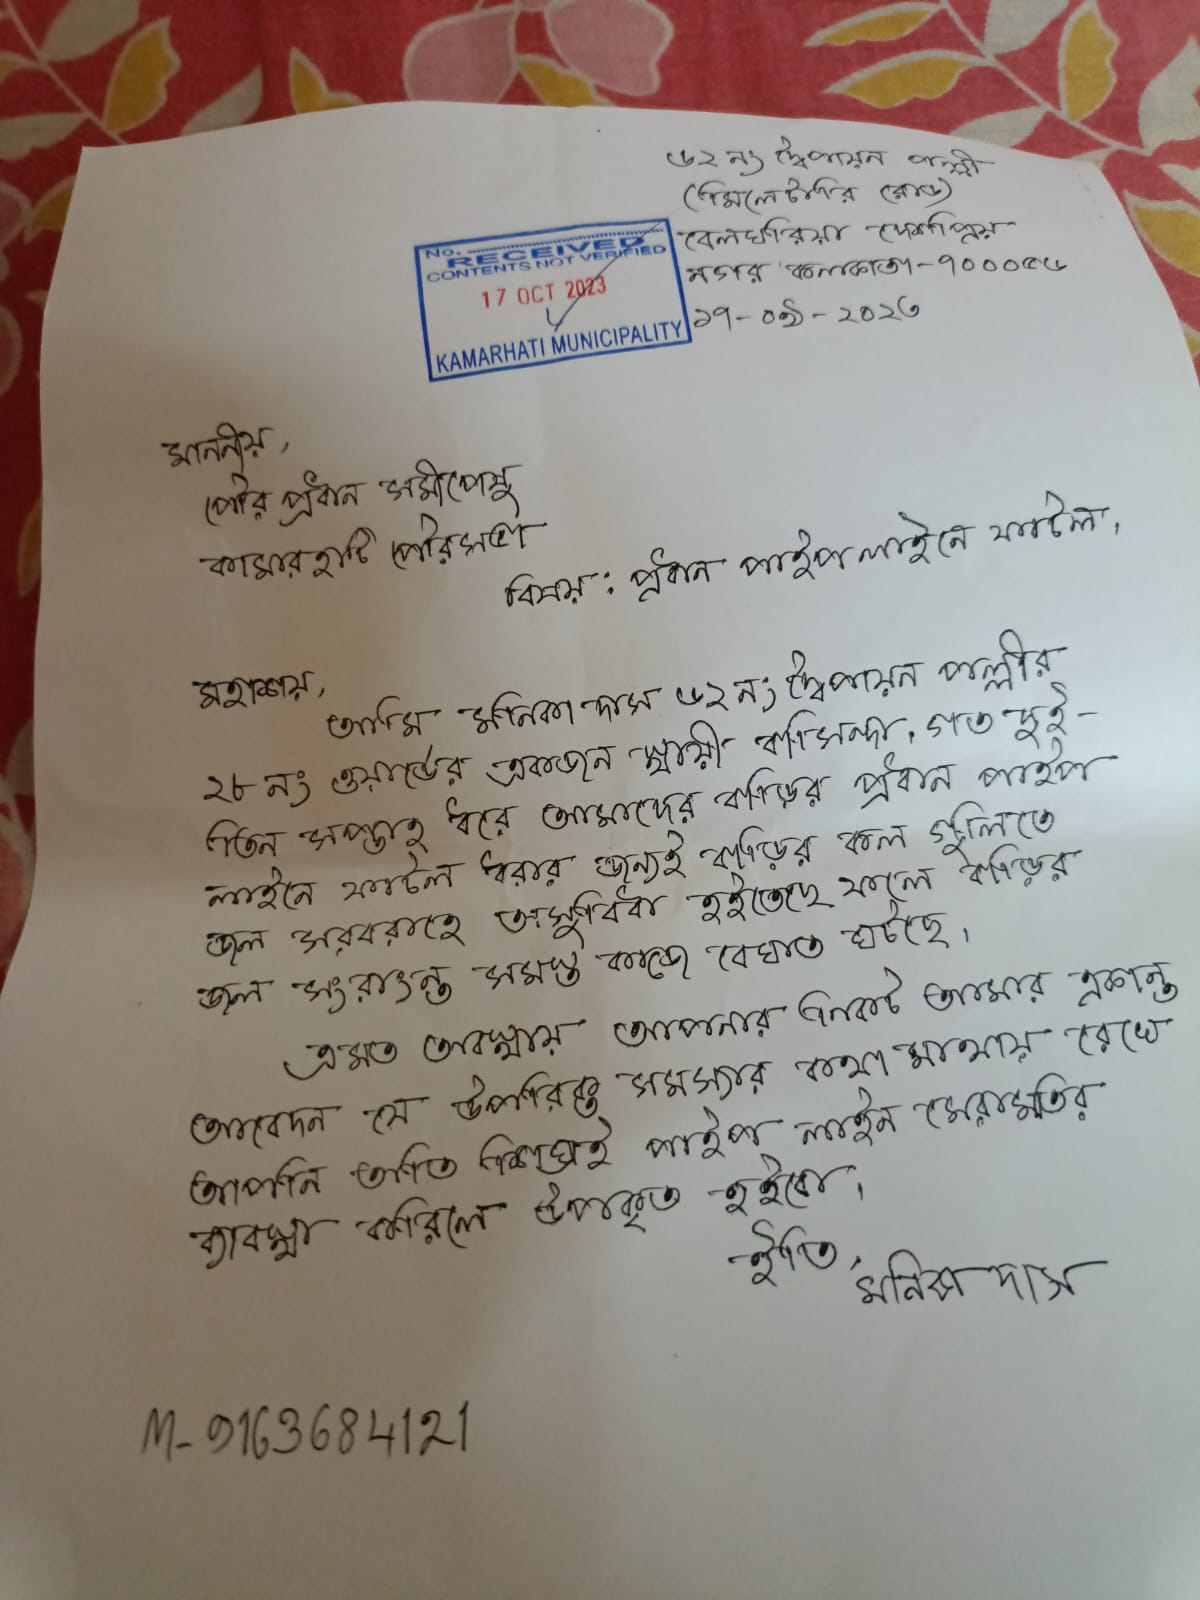 ৬২ নং দ্বৈপায়ন পল্লী
(মিলেটারি রোড)
বেলঘরিয়া দেশপ্রিয়
নগর কলকাতা-৭০০০৫৬
১৭-০৯-২০২৩
NO.
RECEIVED
CONTENTS NOT VERIFIED
17 OCT 2023
KAMARHATI MUNICIPALITY
মাননীয়,
পৌর প্রধান সমীপেসু
কামারহাটি পৌরসভা
বিষয়: প্রধান পাইপ লাইনে ফাটল,
মহাশয়,
আমি মনিকা দাস ৬২ নং দ্বৈপায়ন পল্লীর
২৮ নং ওয়ার্ডের একজন স্থায়ী বাসিন্দা, গত দুই-
তিন সপ্তাহ ধরে আমাদের বাড়ির প্রধান পাইপ
লাইনে ফাটল ধরার জন্যই বাড়ির কল গুলিতে
জল সরবরাহে অসুবিধা হইতেছে ফলে বাড়ির
জল সংরাংন্ত সমস্ত কাজে বেঘাত ঘটছে।
এমত অবস্থায় আপনার নিকট আমার একান্ত
আবেদন যে উপরিক্ত সমস্যার কথা মাথায় রেখে
আপনি অতি শিঘ্রই পাইপ লাইন মেরামতির
ব্যাবস্থা করিলে উপকৃত হইবো।
ইতি,
মনিকা দাস
M-9163684121